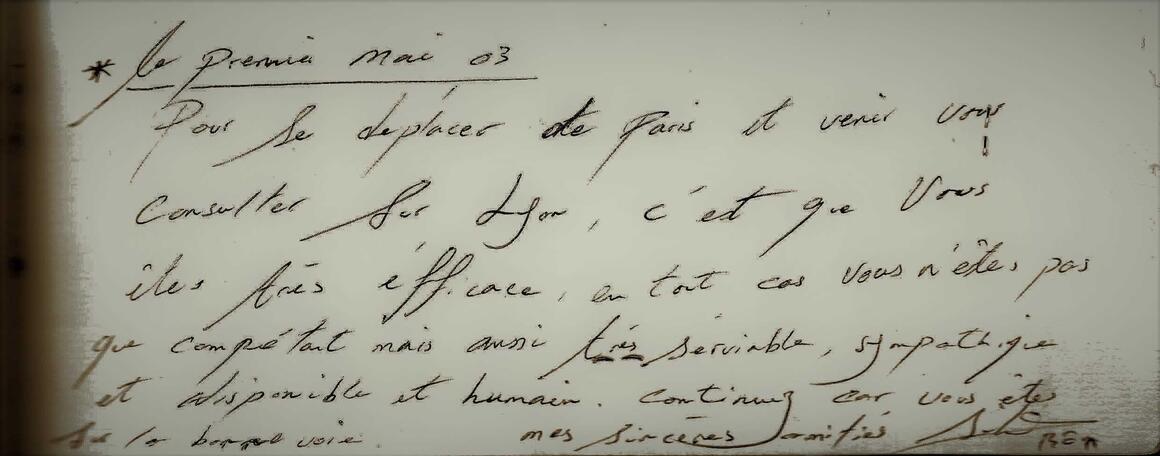 * le premia mai 03
Pour se deplacer de Paris et venir vous
consulter sur Lyon, c'est que Vous
êtes très éfficace, en tout cas vous n'êtes pas
que compétant mais aussi très serviable, sympathique
et disponible et humain. continuez car vous êtes
sur la bonne voie mes sincères amitiés